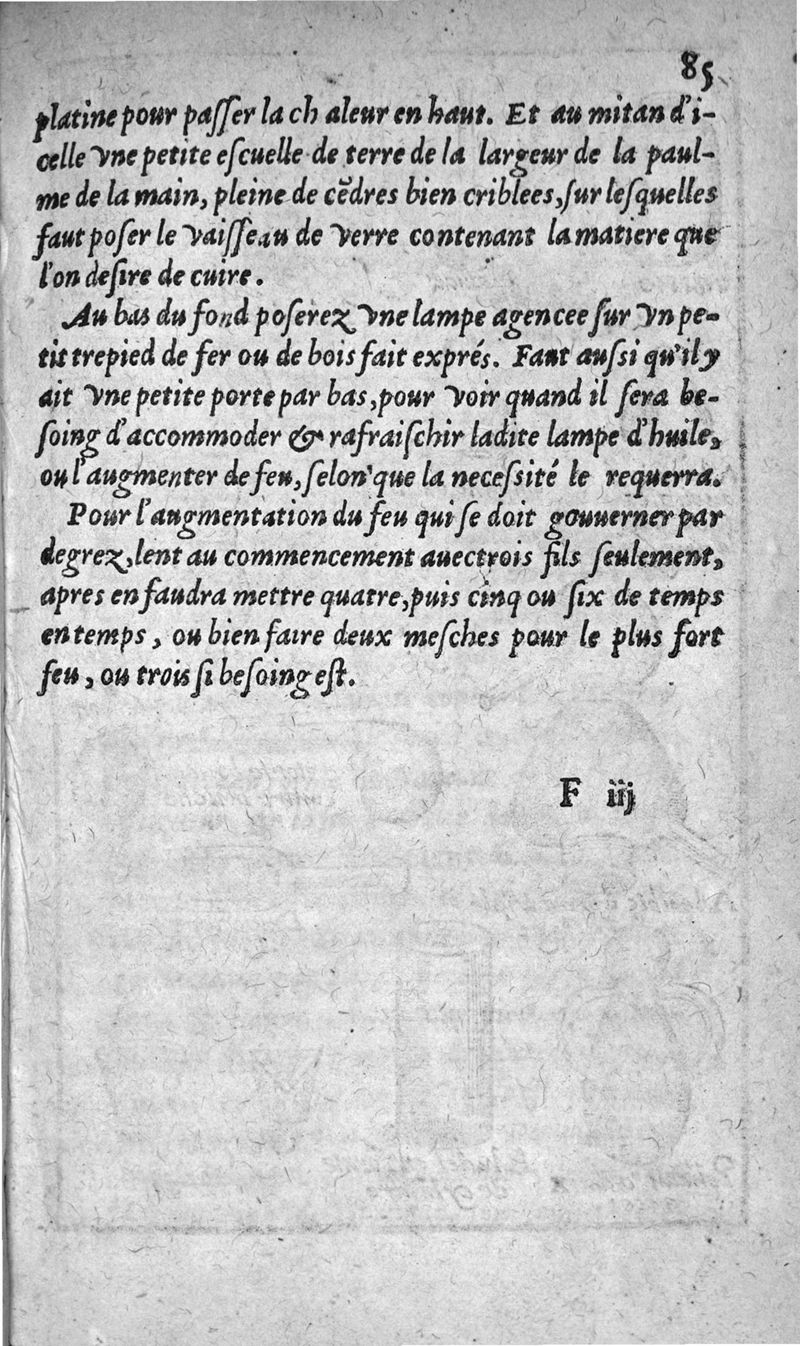 85
platine pour paſſer la ch aleur en haut. Et au mitan d'i-
celle vne petite eſcuelle de terre de la largeur de la paul-
me de la main, pleine de cẽdres bien criblees, ſur leſquelles
faut poſer le vaiſſeau de verre contenant la matiere que
l'on deſire de cuire.
Au bas du fond poſerez vne lampe agencee ſur vn pe-
tit trepied de fer ou de bois fait exprés. Faut auſsi qu'il y
ait vne petite porte par bas, pour voir quand il ſera be-
ſoing d'accommoder & rafraiſchir ladite lampe d'huile,
ou l'augmenter de feu, ſelon que la neceſsité le requerra.
Pour l'augmentation du feu qui ſe doit gouuerner par
degrez, lent au commencement auec trois fils ſeulement,
apres en faudra mettre quatre, puis cinq ou ſix de temps
en temps, ou bien faire deux meſches pour le plus fort
feu, ou trois ſi beſoing eſt.
F iij